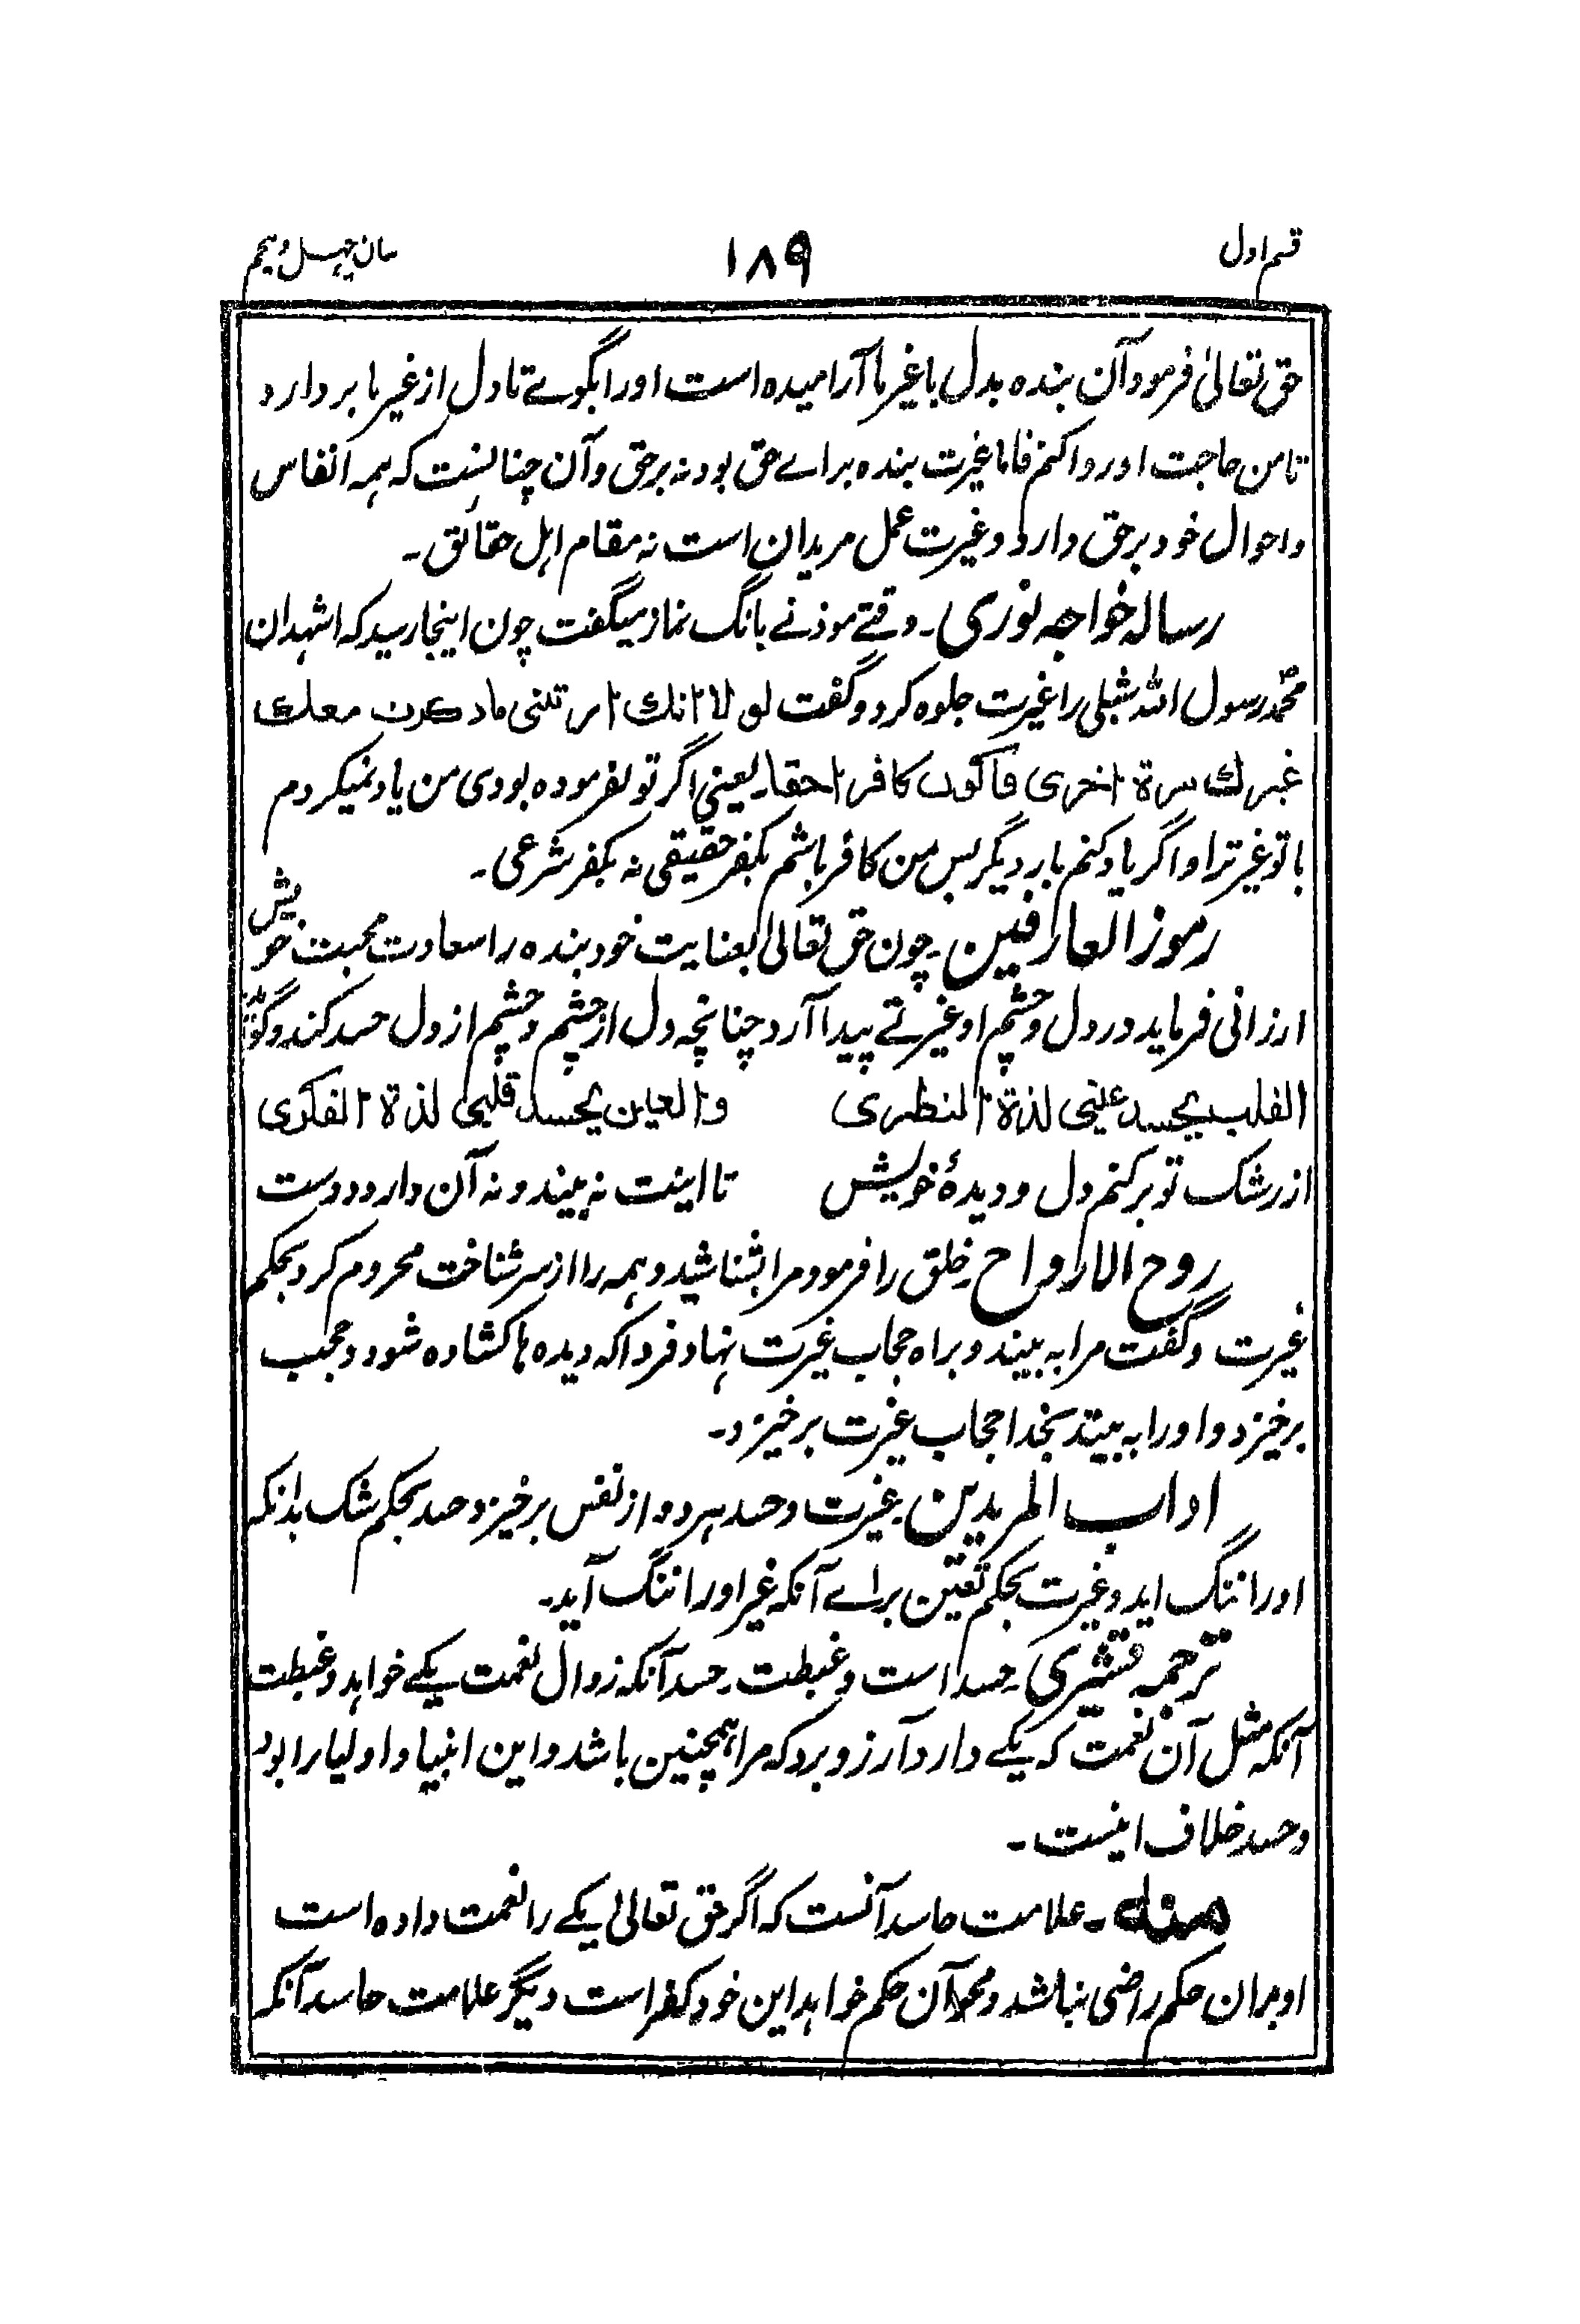 قسم اول
۱۸۹
بیان چہل و پنجم
حق تعالیٰ فرمود آن بنده بدل با غیر ما آرامیده است اورا بگوے تا دل از غیر ما بردارد
تا من حاجت او روا کنم فاما غیرت بنده براے حق بود نه بر حق و آن چنانست که ہمہ انفاس
واحوال خود بر حق دارد و غیرت عمل مریدان است نه مقام اہل حقائق۔
رسالہ خواجہ نوری۔ وقتے موذنے بانگ نماز میگفت چون اینجا رسید کہ اشہد ان
محمد رسول اللہ شبلی را غیرت جلوہ کرد و گفت لو لا انك امرتنی ماذکرت معك
غیرك مرة اخری فاکون کافرا حقا۔ یعنی اگر تو نفرمودہ بودی من یاد نمیکردم
با تو غیر ترا و اگر یاد کنم بار دیگر پس من کافر باشم بکفر حقیقی نہ بکفر شرعی۔
رموز العارفین۔ چون حق تعالیٰ بعنایت خود بندہ را سعادت محبت خویش
ارزانی فرماید در دل و چشم او غیرتے پیدا آرد چنانچہ دل از چشم و چشم از دل حسد کند و گوید
القلب یحسد عینی لذة النظری والعین یحسد قلبی لذة الفکری
از رشک تو برکنم دل و دیدۂ خویش تا اینت نہ بیند و نہ آن دارد دوست
روح الارواح۔ خلق را فرمود مرا بشناسید و ہمہ را از سر شناخت محروم کرد بحکم
غیرت و گفت مرا بہ بیند و براہ حجاب غیرت نہاد فردا کہ دیدہ ہا کشادہ شود و حجب
برخیزد و اورا بہ بیند بخدا حجاب غیرت برخیزد۔
اداب المریدین۔ غیرت و حسد ہر دو از نفس برخیزد حسد بحکم شک بدانکہ
اورا ننگ اید و غیرت بحکم تعین براے آنکہ غیر اورا ننگ آید۔
ترجمہ قشیری۔ حسد است و غبطت۔ حسد آنکہ زوال نعمت یکے خواہد و غبطت
آنکہ مثل آن نعمت کہ یکے دارد آرزو برد کہ مرا ہمچنین باشد و این انبیا و اولیا را بود
و حسد خلاف اینست۔
منہ۔ علامت حاسد آنست کہ اگر حق تعالیٰ یکے را نعمت دادہ است
او بران حکم راضی نباشد و محو آن حکم خواہد این خود کفر است دیگر علامت حاسد آنکہ